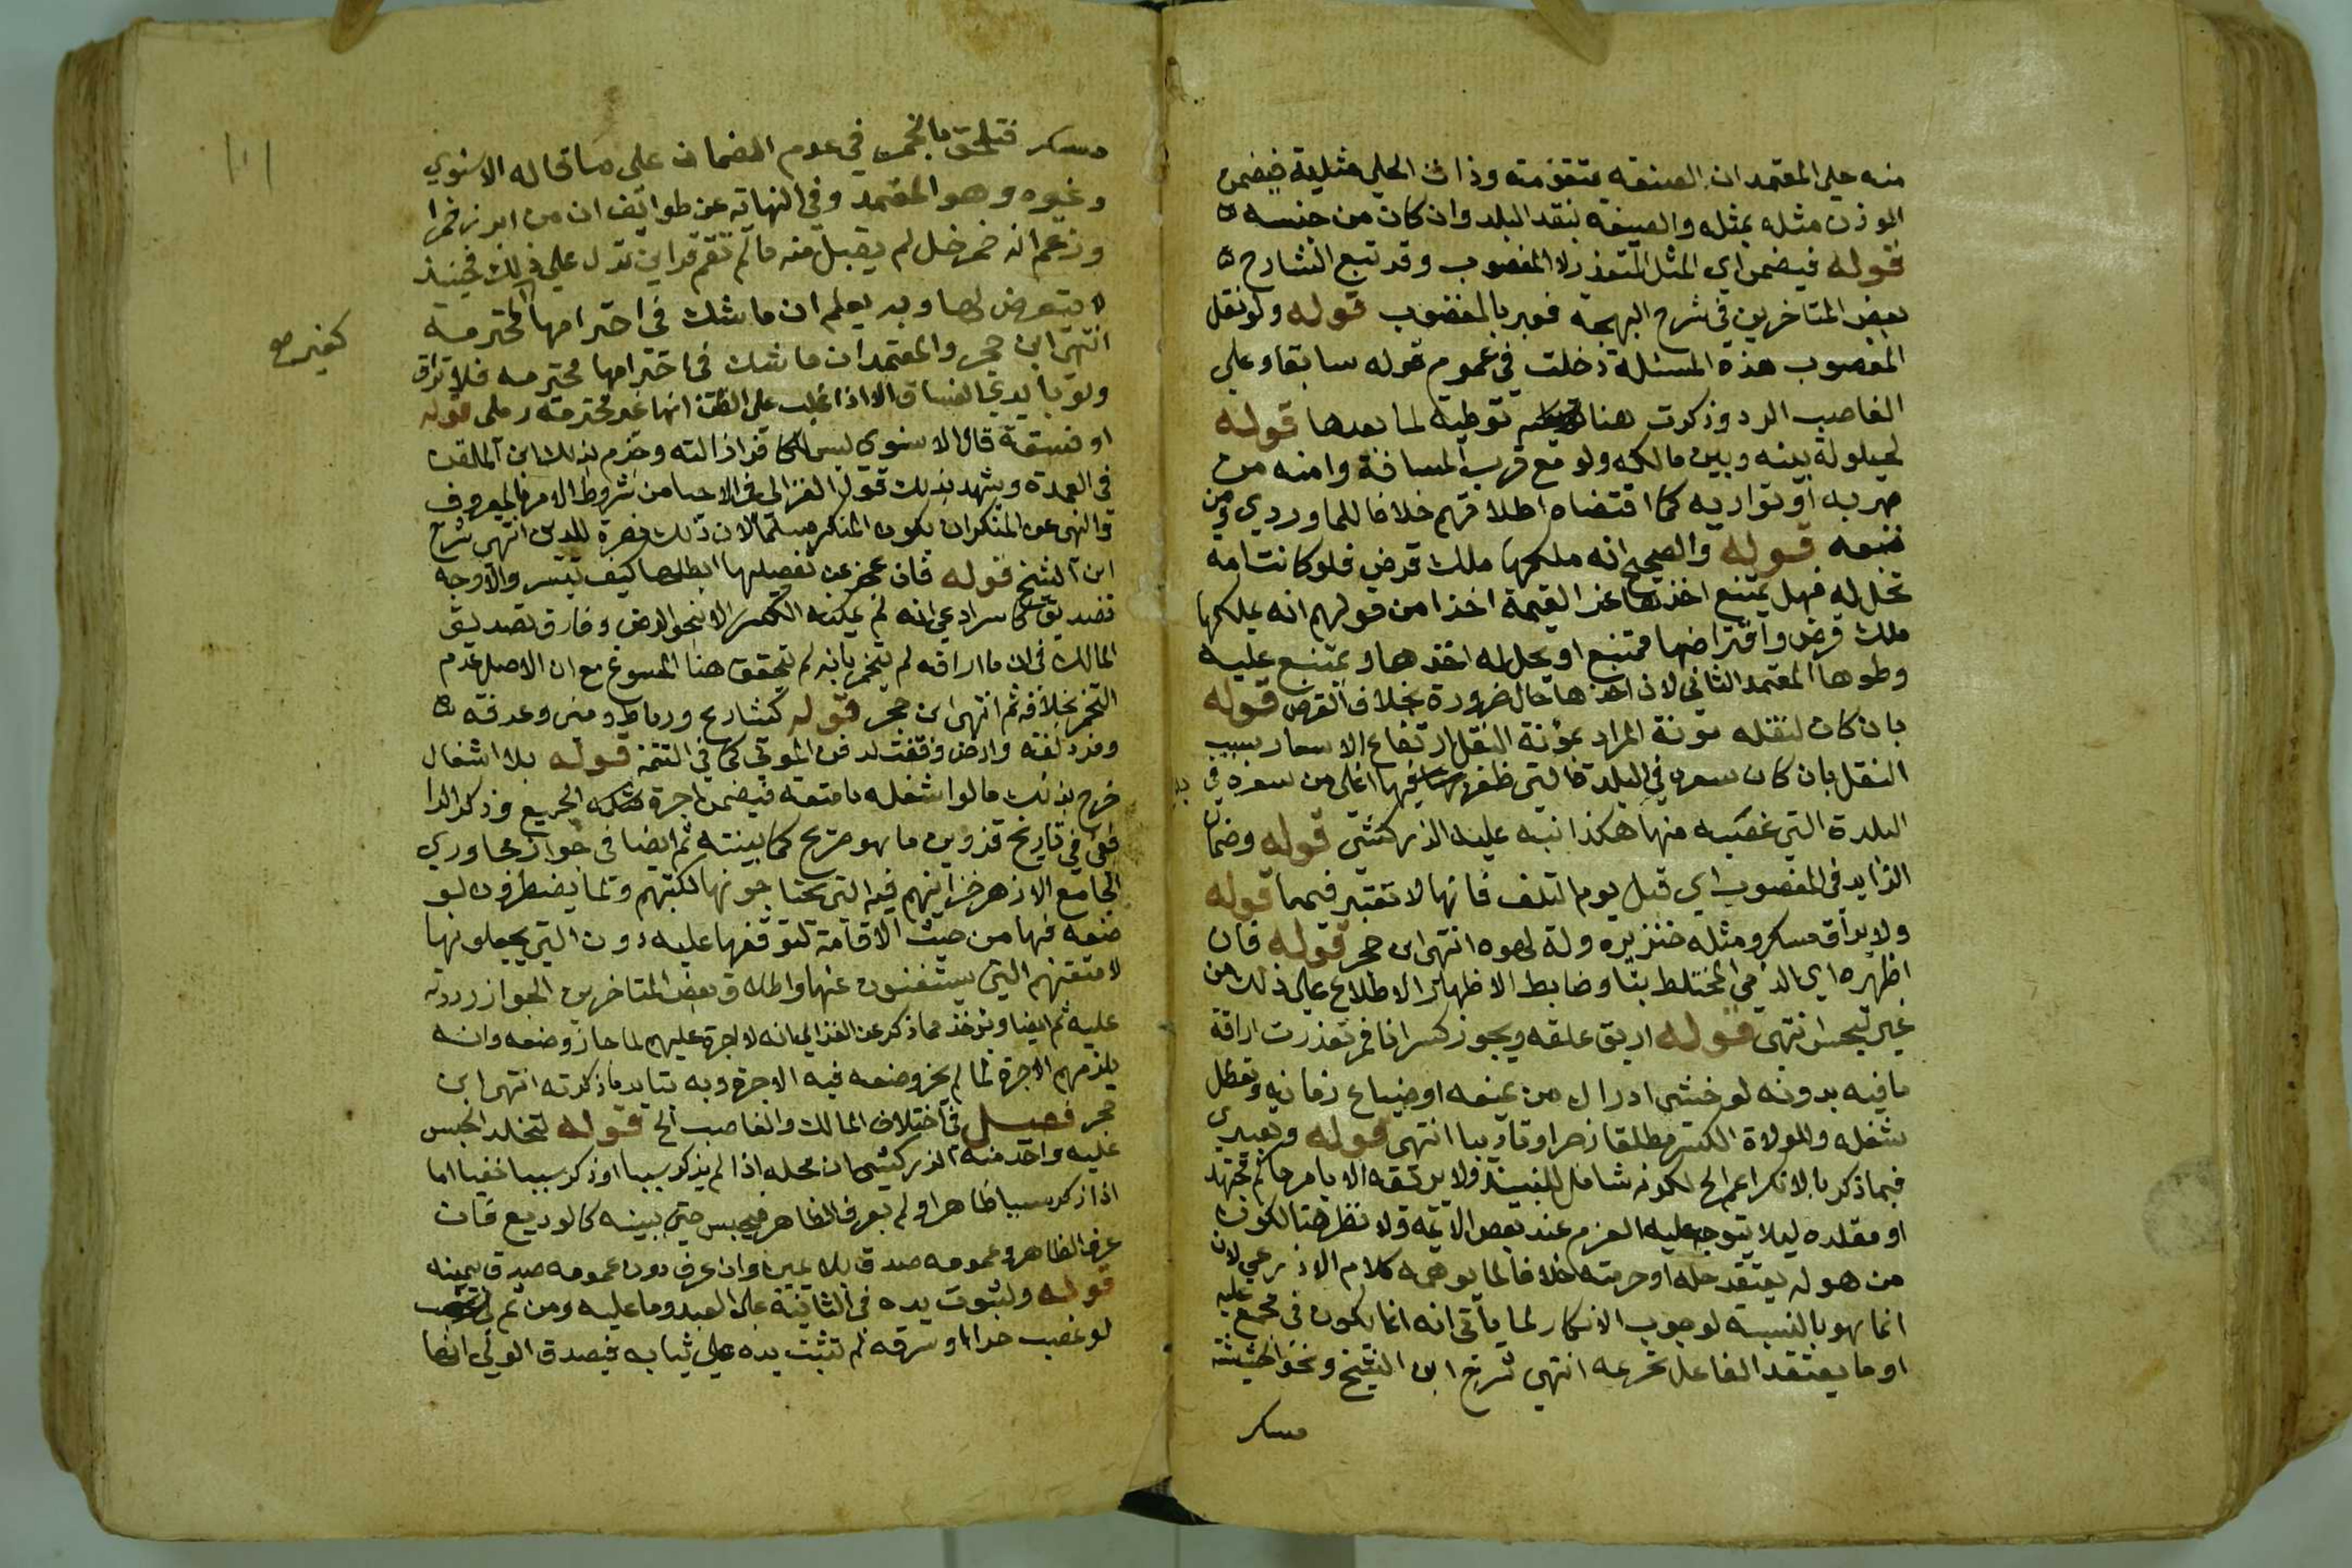 منه حلي المعتمد ان الصنعة متقومة وذات الحلي مثلية فيضمن
الموزن مثله بمثله والصنعة بنقد البلد وان كان من جنسه
قوله فيضمن اي المثل المتعذر لا المغصوب وقد تبع الشارح
بعض المتاخرين في شرح البهجة فعبر بالمغصوب قوله ولو نقل
المغصوب هذه المسئلة دخلت في عموم قوله سابقا وعلي
الغاصب الرد وذكرت هنا توطية لما بعدها قوله
لحيلولة بينه وبين مالكه ولو مع قرب المسافة وامنه من
هربه او تواريه كما اقتضاه اطلاقهم خلافا للماوردي ومن
تبعه قوله والصحيح انه ملكها ملك قرض فلو كانت امة
تحل له فهل يمتنع اخذها عن القيمة اخذا من قولهم انه يملكها
ملك قرض واقتراضها ممتنع او يحل له اخذها ويمتنع عليه
وطوها المعتمد الثاني لان اخذها حال ضرورة بخلاف القرض قوله
بان كان لنقله مونة المراد بمؤنة النقل ارتفاع الاسعار بسبب
النقل بان كان سعره في البلدة التي ظفر به فيها اغلى من سعره في
البلدة التي غصبه منها هكذا نبه عليه الزركشي قوله وضمان
الزايد في المغصوب اي قبل يوم التلف فانها لا تعتبر فيهما قوله
ولا يراق مسكر ومثله خنزيره ولة لهوه انتهى ابن حجر قوله فان
اظهره اي الذمي المختلط بنا وضابط الاظهار الاطلاع على ذلك من
غير تجسس انتهى قوله اريق علقه ويجوز كسر انا خمر تعذرت اراقة
ما فيه بدونه لو خشي ادراك من يمنعه او ضياع زمانه وتعطل
شغله وللولاة الكسر مطلقا زجرا وتاديبا انتهى قوله وتعبيري
فيما ذكر بالانكار اعم الخ لكونه شامل للنبيذ ولا يرقه الا بامر حاكم مجتهد
او مقلده ليلا يتوجه عليه الغرم عند بعض الائمة ولا نظر هنا لكون
من هو له يعتقد حله او حرمته خلافا لما يوهمه كلام الاذرعي لان
انما هو بالنسبة لوجوب الانكار لما ياتي انه انما يكون في مجمع عليه
او ما يعتقد الفاعل تحريمه انتهى شرح ابن الشيخ ونحو الحشيشة
مسكر
١٠١
مسكر فتلحق بالخمر في عدم الضمان على ما قاله الاسنوي
وغيره وهو المعتمد وفي النهاية عن طوائف ان من ابرز خمرا
وزعم انه خمر خل لم يقبل منه ما لم تقم قراين تدل على ذلك فحينئذ
لا يتعرض لها وبه يعلم ان ما شك في احترامها المحترمة
كغير مع
انتهى ابن حجر والمعتمد ان ما شك في احترامها محترمة فلا تراق
ولو بايدي الفساق الا اذا غلب على الظن انها غير محترمة رملي قوله
او فسقة قال الاسنوي ليس للكافر ازالته وجزم بذلك ابن الملقن
في العمدة ويشهد بذلك قول الغزالي في الاحيا من شروط الامر بالمعروف
والنهي عن المنكر ان يكون المنكر مسلما لان ذلك نصرة للدين انتهى شرح
ابن الشيخ قوله فان عجز عن تفصيلها ابطلها كيف تيسر والاوجه
تصديق كاسر ادعى انه لم يمكنه الكسر الا بنحو الرض وفارق تصديق
المالك في ان ما اراقه لم يتخمر بانه لم يتحقق هنا المسوغ مع ان الاصل عدم
التخمر بخلافه ثم انتهى ابن حجر قوله كشارع ورباط ومنى وعرفة
ومزدلفة وارض وقفت لدفن الموتى كما في التتمة قوله بلا اشغال
خرج بذلك ما لو اشغله بامتعة فيضمن اجرة مثله الجميع وذكر الرا
فعي في تاريخ قزوين ما هو صريح كما بينته ثم ايضا في جواز مجاوري
الجامع الازهر خزاينهم فيه التي يحتاجونها لكتبهم ولما يضطرون لو
ضعه فيها من حيث الاقامة لتوقفها عليه دون التي يجعلونها
لامتعتهم التي يستغنون عنها واطلاق بعض المتاخرين الجواز رددته
عليه ثم ايضا ويوخذ مما ذكر عن الغزالي انه لا اجرة عليهم لما جاز وضعه وانه
يلزمهم الاجرة لما لم يجز وضعه فيه الاجرة وبه يتايد ما ذكرته انتهى ابن
حجر فصل في اختلاف المالك والغاصب الخ قوله لتخلد الحبس
عليه واخذ منه الزركشي ان محله اذا لم يذكر سببا او ذكر سببا خفيا اما
اذا ذكر سببا ظاهرا ولم يعرف الظاهر فيحبس حتى يبينه كالوديع فان
عرف الظاهر وعمومه صدق بلا يمين وان عرف دون عمومه صدق بيمينه
قوله ولثبوت يده في الثانية على العبد وما عليه ومن ثم
لو غصب حرا او سرقه لم تثبت يده على ثيابه فيصدق الولي انها